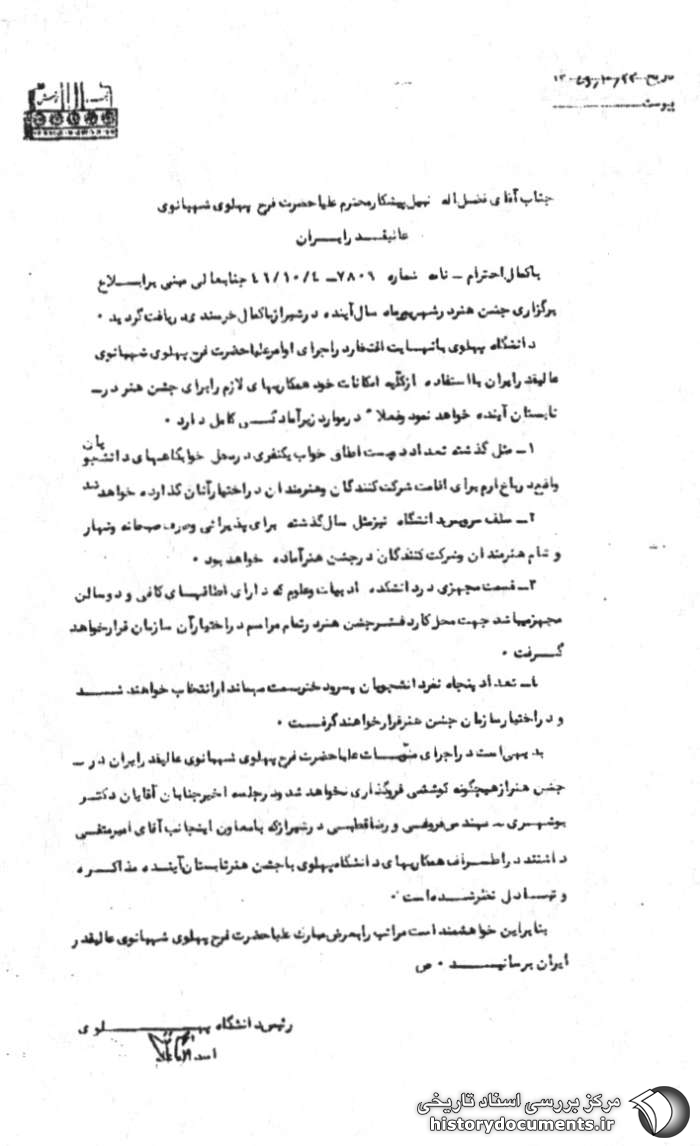 تاریخ
پیوست
جناب آقای فضل اله نبیل پیشکار محترم علیاحضرت فرح پهلوی شهبانوی
عالیقدر ایران
با کمال احترام ـ نامه شماره ۷۸۰۶ـ ۴۶/۱۰/۴ جنابعالی مبنی بر ابلاغ
برگزاری جشن هنر در شهریور ماه سال آینده در شیراز با کمال خرسندی دریافت گردید .
دانشگاه پهلوی با نهایت افتخار در اجرای اوامر علیاحضرت فرح پهلوی شهبانوی
عالیقدر ایران با استفاده از کلیه امکانات خود همکاریهای لازم را برای جشن هنر در ـ
تابستان آینده خواهد نمود و فعلا" در موارد زیر آمادگی کامل دارد .
۱ـ مثل گذشته تعداد دویست اطاق خواب یکنفری در محل خوابگاههای دانشجویان
واقع در باغ ارم برای اقامت شرکت کنندگان و هنرمندان در اختیار آنان گذارده خواهد شد
۲ـ سلف سرویس دانشگاه نیز مثل سال گذشته برای پذیرائی و صرف صبحانه و نهار
و شام هنرمندان و شرکت کنندگان در جشن هنر آماده خواهد بود .
۳ـ قسمت مجهزی در دانشکده ادبیات و علوم که دارای اطاقهای کافی و دو سالن
مجهز میباشد جهت محل کار دفتر جشن هنر در تمام مراسم در اختیار آن سازمان قرار خواهد
گرفت .
۴ـ تعداد پنجاه نفر دانشجویان پسر و دختر بسمت مهماندار انتخاب خواهند شد
و در اختیار سازمان جشن هنر قرار خواهند گرفت .
بدیهی است در اجرای منویات علیاحضرت فرح پهلوی شهبانوی عالیقدر ایران در ـ
جشن هنر از هیچگونه کوششی فروگذاری نخواهد شد و در جلسه اخیر جنابان آقایان دکتر
بوشهری ـ مهندس فروغی و رضا قطبی در شیراز که با معاون اینجانب آقای امیر متقی
داشتند در اطراف همکاریهای دانشگاه پهلوی با جشن هنر تابستان آینده مذاکره
و تبادل نظر شده است .
بنابراین خواهشمند است مراتب را بعرض مبارک علیاحضرت فرح پهلوی شهبانوی عالیقدر
ایران برسانید . ص
رئیس دانشگاه پهلوی
اسداله علم
مرکز بررسی اسناد تاریخی
historydocuments.ir